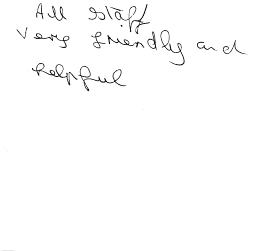 All staff
very friendly and
helpful